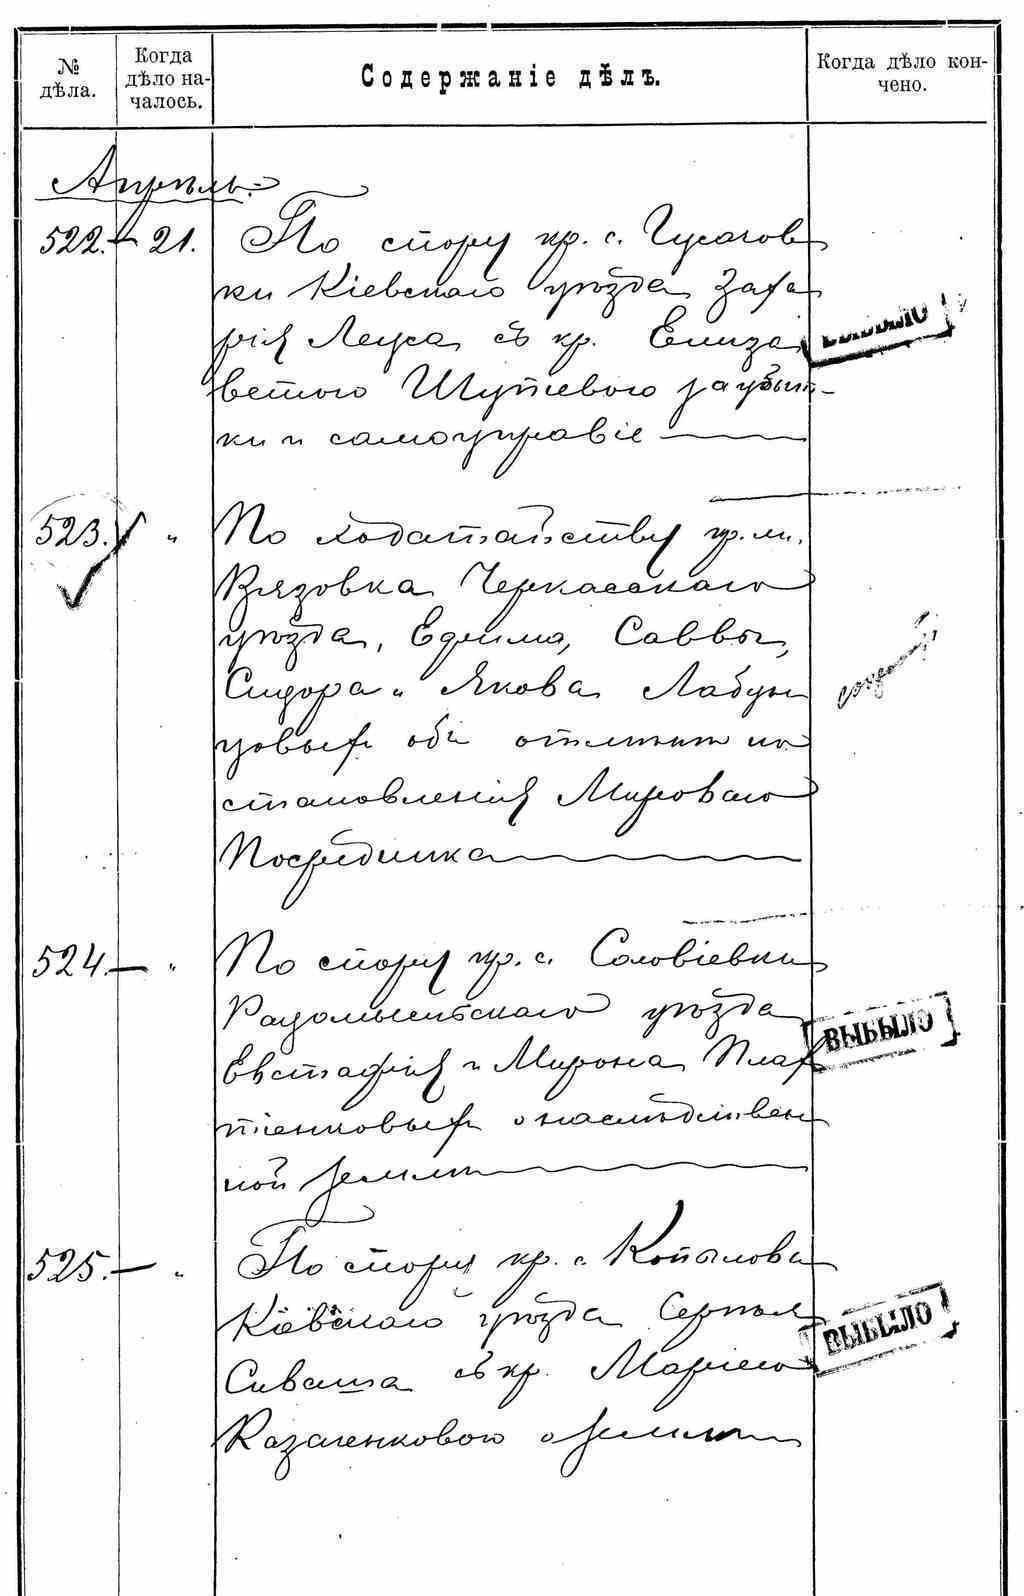 № дѣла.
Когда дѣло на-
чалось.
Содержаніе дѣлъ.
Когда дѣло кон-
чено.
Апрѣль.
522. 21. По спору кр. с. Гусаков
ки Кіевскаго уѣзда Заха
рія Леуса съ кр. Елиза
ветою Шутневою за убыт-
ки и самоуправіе
ВЫБЫЛО
523. " По ходатайству кр. м.
Вязовка Черкасскаго
уѣзда, Ефима, Саввы,
Сидора и Якова Лабун
цовыхъ объ отмѣнѣ по
становленія Мироваго
Посредника
524. " По спору кр. с. Соловіевки
Радомысльскаго уѣзда
ВЫБЫЛО
Евстафія и Мирона Плах
тіенковыхъ о наслѣдствен
ной землѣ
525. " По спору кр. с. Копылова
Кіевскаго уѣзда Сергѣя
ВЫБЫЛО
Сиваша съ кр. Маріею
Казаченковою о землѣ